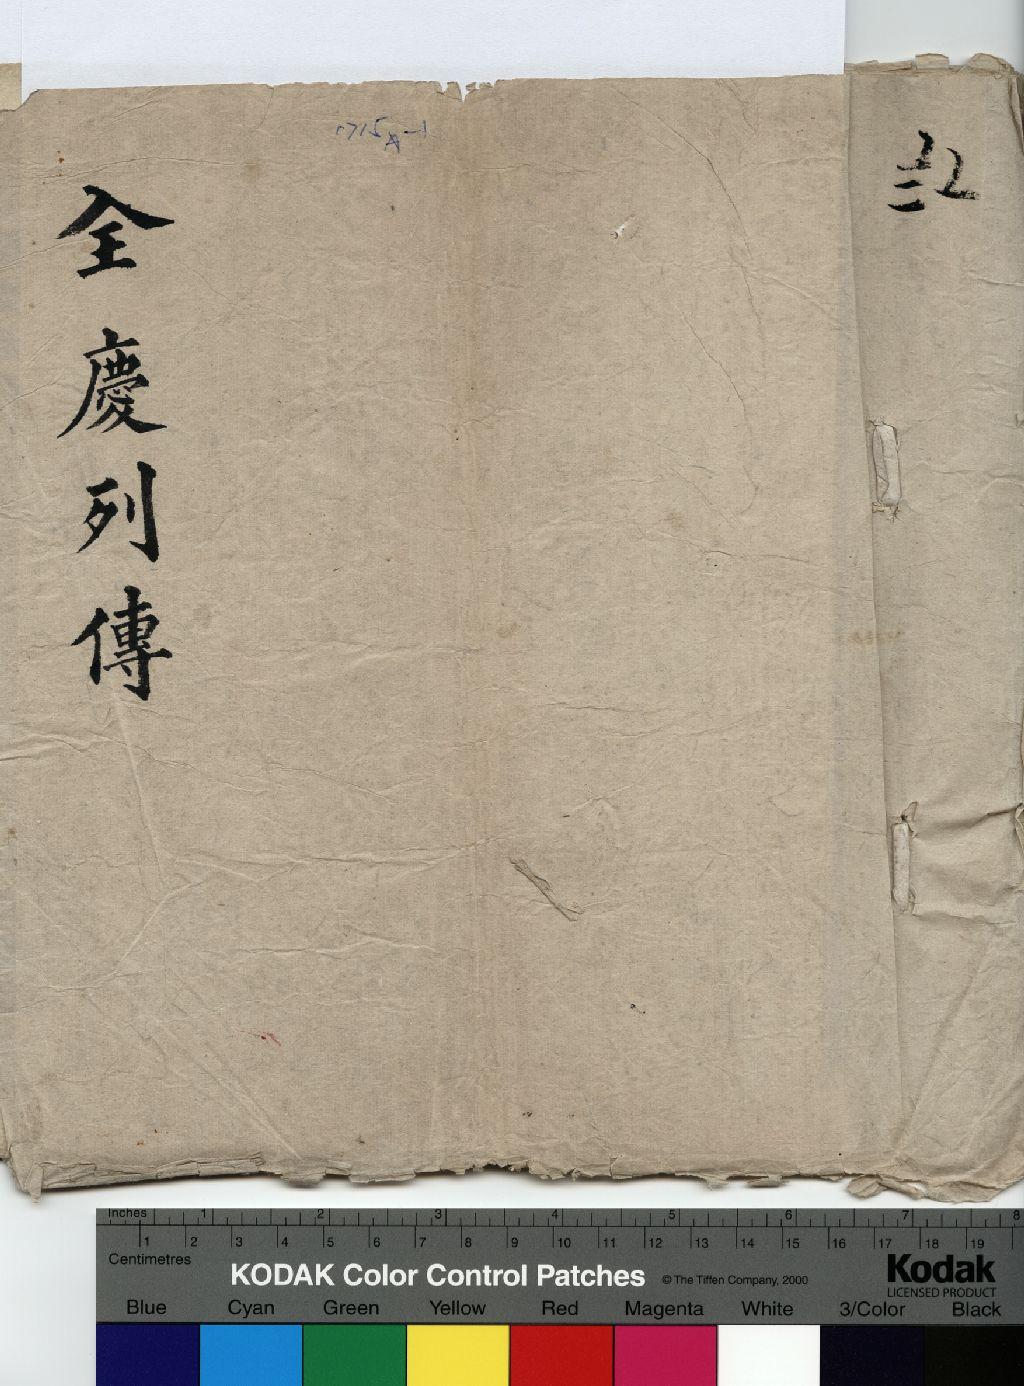 全慶列傳
Inches 1 2 3 4 5 6 7 8
1 2 3 4 5 6 7 8 9 10 11 12 13 14 15 16 17 18 19
Centimetres
KODAK Color Control Patches © The Tiffen Company, 2000 Kodak
LICENSED PRODUCT
Blue Cyan Green Yellow Red Magenta White 3/Color Black